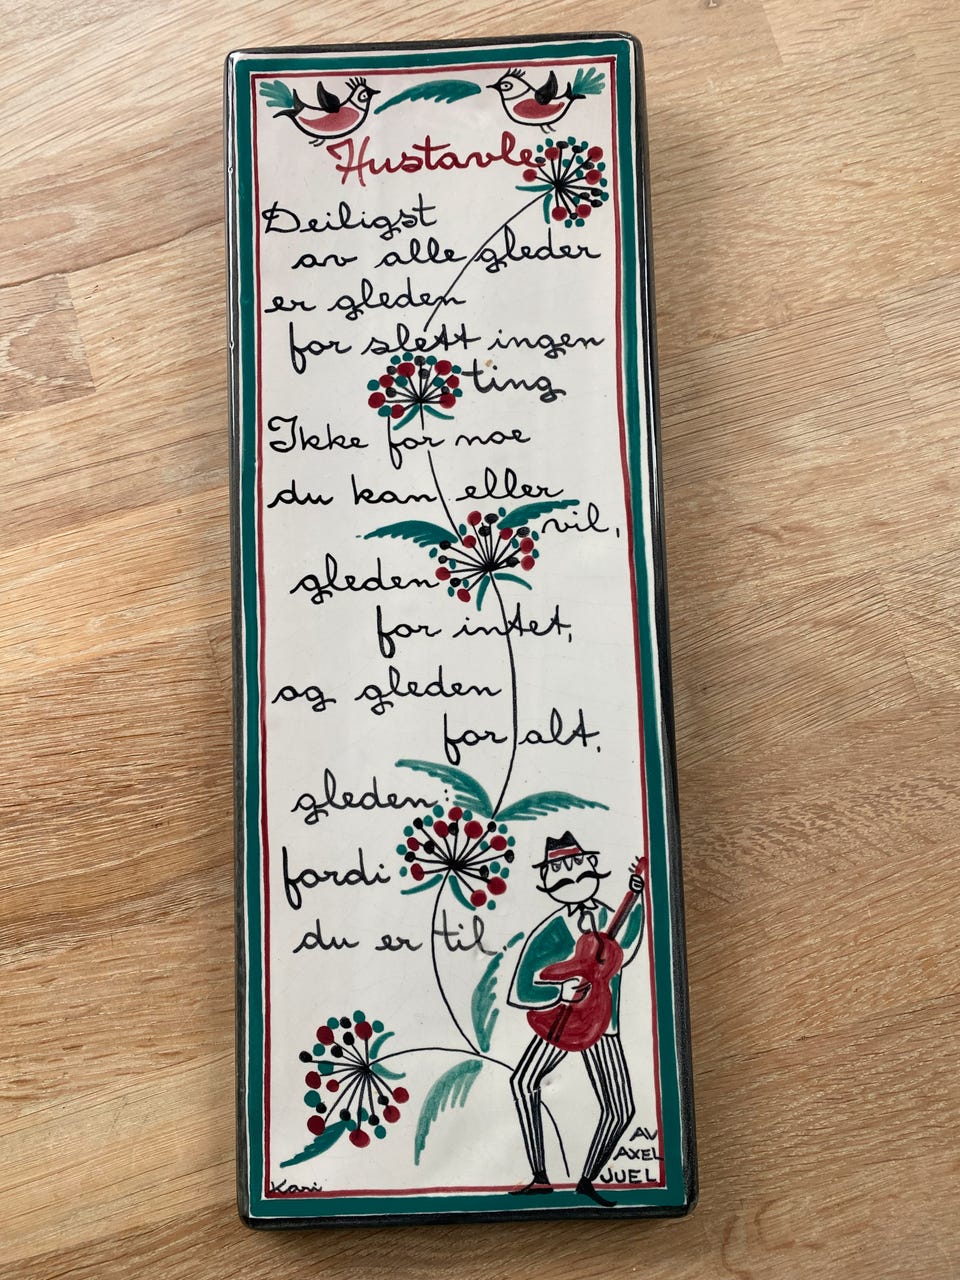 Hustavle
Deiligst
av alle gleder
er gleden
for slett ingen
ting
Ikke for noe
du kan eller
vil,
gleden
for intet,
og gleden
for alt,
gleden:
fordi
du er til.
AV
AXEL
JUEL
Kari